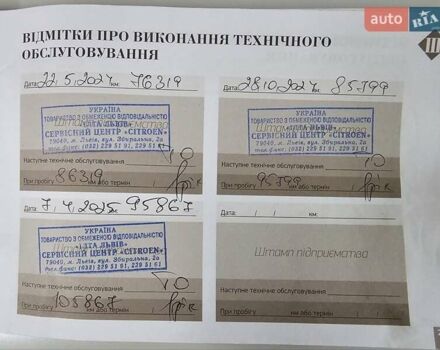 auto RIA
ВІДМІТКИ ПРО ВИКОНАННЯ ТЕХНІЧНОГО
ОБСЛУГОВУВАННЯ
III
Дата: 22.5.2024 км: 76319
УКРАЇНА
ТОВАРИСТВО З ОБМЕЖЕНОЮ ВІДПОВІДАЛЬНІСТЮ
«ІЛТА ЛЬВІВ»
СЕРВІСНИЙ ЦЕНТР «CITROEN»
79040, м. Львів, вул. Збиральна, 2а
тел.факс: (032) 229 51 91, 229 51 61
Наступне технічне обслуговування ТО
При пробігу 86319 км або термін 1 рік
Дата: 28.10.2024 85799
УКРАЇНА
ТОВАРИСТВО З ОБМЕЖЕНОЮ ВІДПОВІДАЛЬНІСТЮ
«ІЛТА ЛЬВІВ»
СЕРВІСНИЙ ЦЕНТР «CITROEN»
79040, м. Львів, вул. Збиральна, 2а
тел.факс: (032) 229 51 91, 229 51 61
Наступне технічне обслуговування ТО
При пробігу 95799 км або термін 1 рік
Дата: 7.4.2025 95867
УКРАЇНА
ТОВАРИСТВО З ОБМЕЖЕНОЮ ВІДПОВІДАЛЬНІСТЮ
«ІЛТА ЛЬВІВ»
СЕРВІСНИЙ ЦЕНТР «CITROEN»
79040, м. Львів, вул. Збиральна, 2а
тел.факс: (032) 229 51 91, 229 51 61
Наступне технічне обслуговування ТО
При пробігу 105867 км або термін 1 рік
Дата: / / км:
Штамп підприємства
Наступне технічне обслуговування
При пробігу км або термін / /